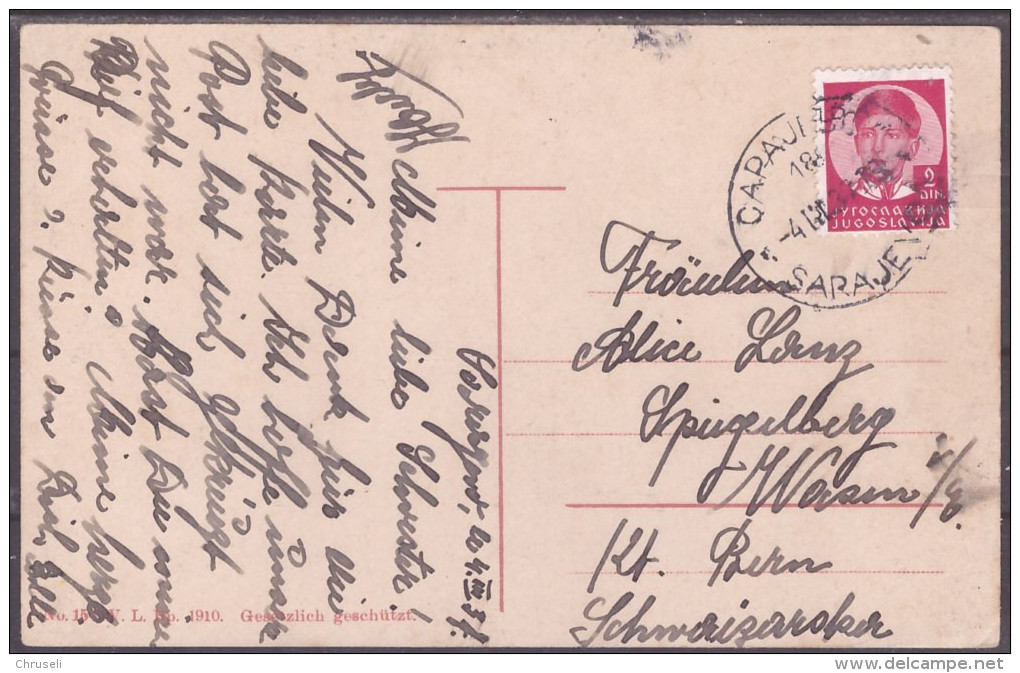 Sarajevo, d. 4. III 37.
Meine liebe Schwester!
Vielen Dank für die
liebe Karte. Ich hoffe unsere
Post hat sich gekreuzt
nicht wahr. Hast Du meine
Brief erhalten? Meine herzge
Grüsse u. Küsse an Dich, Elle
Fräulein
Alice Lanz
Spiegelberg
Wasen i/E.
Kt. Bern
Schweizarska
САРАЈЕВО
-4.III
SARAJEVO
2
DIN
ЈУГОСЛАВИЈА
JUGOSLAVIJA
No. 15 W. L. Bp. 1910. Gesetzlich geschützt.
Chruseli
delcampe.net